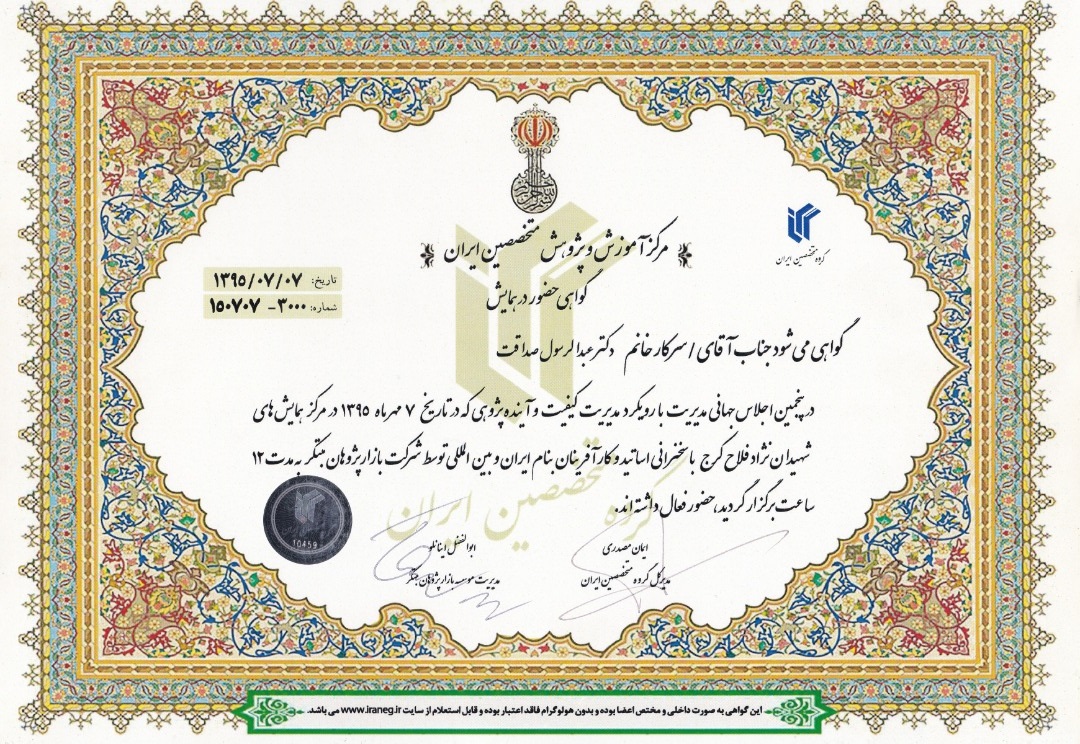 مرکز آموزش و پژوهش متخصصین ایران
گروه متخصصین ایران
گواهی حضور در همایش
تاریخ: ۱۳۹۵/۰۷/۰۷
شماره: ۳۰۰۰- ۱۵۰۷۰۷
گواهی می شود جناب آقای / سرکار خانم دکتر عبدالرسول صداقت
در پنجمین اجلاس جهانی مدیریت با رویکرد مدیریت کیفیت و آینده پژوهی که در تاریخ ۷ مهرماه ۱۳۹۵ در مرکز همایش های
شهیدان نژاد فلاح کرج با سخنرانی اساتید و کارآفرینان بنام ایران و بین المللی توسط شرکت بازارپژوهان مبتکر به مدت ۱۲
ساعت برگزار گردید، حضور فعال داشته اند.
گروه متخصصین ایران
10459
ایمان مصدری
مدیرکل گروه متخصصین ایران
ابوالفضل اینانلو
مدیریت موسسه بازارپژوهان مبتکر
این گواهی به صورت داخلی و مختص اعضا بوده و بدون هولوگرام فاقد اعتبار بوده و قابل استعلام از سایت www.iraneg.ir می باشد.